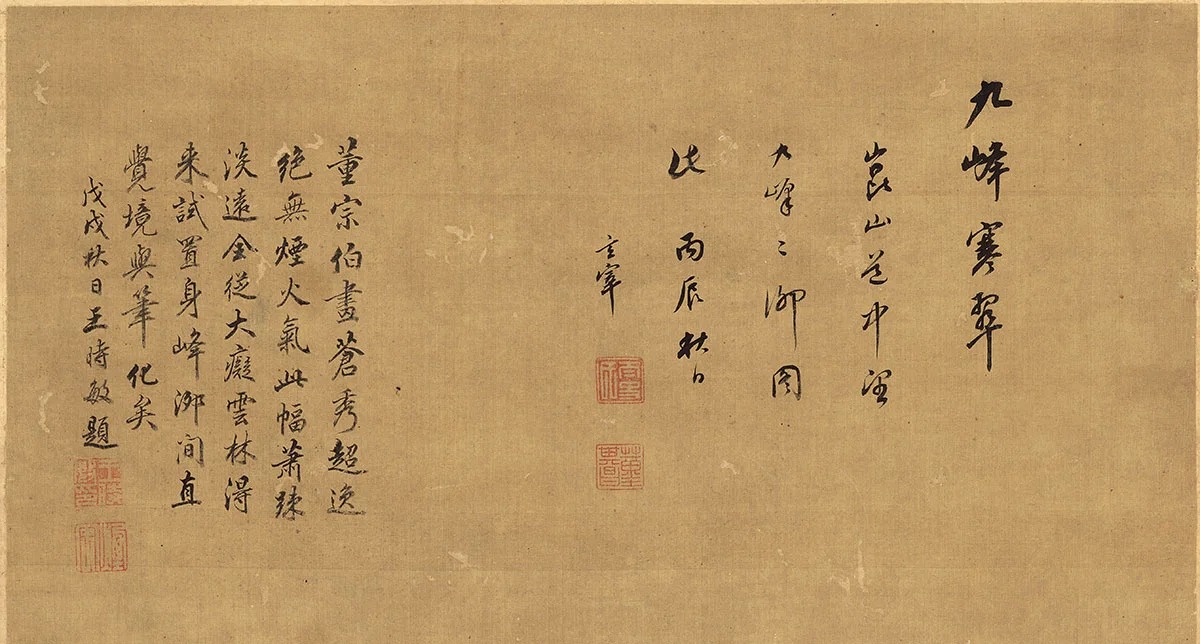 九峰寒翠
崑山道中望
九峰〻泖圖
此 丙辰秋日
玄宰
董宗伯畫蒼秀超逸
絕無煙火氣此幅蕭踈
淡遠全從大癡雲林得
来試置身峰泖間直
覺境與筆化矣
戊戌秋日王時敏題